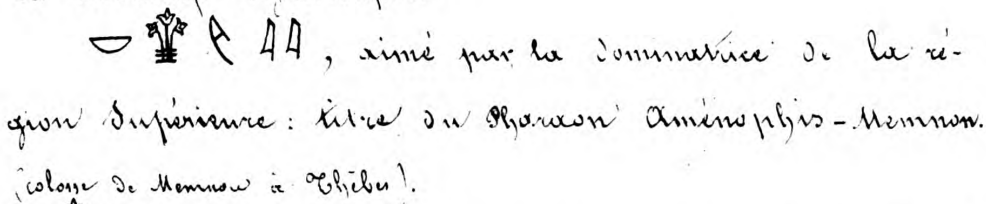 𓎟𓇗𓌻𓇋𓇋, aimé par la dominatrice de la ré-
gion Supérieure : titre du Pharaon Aménophis-Memnon.
(colosse de Memnon à Thèbes).